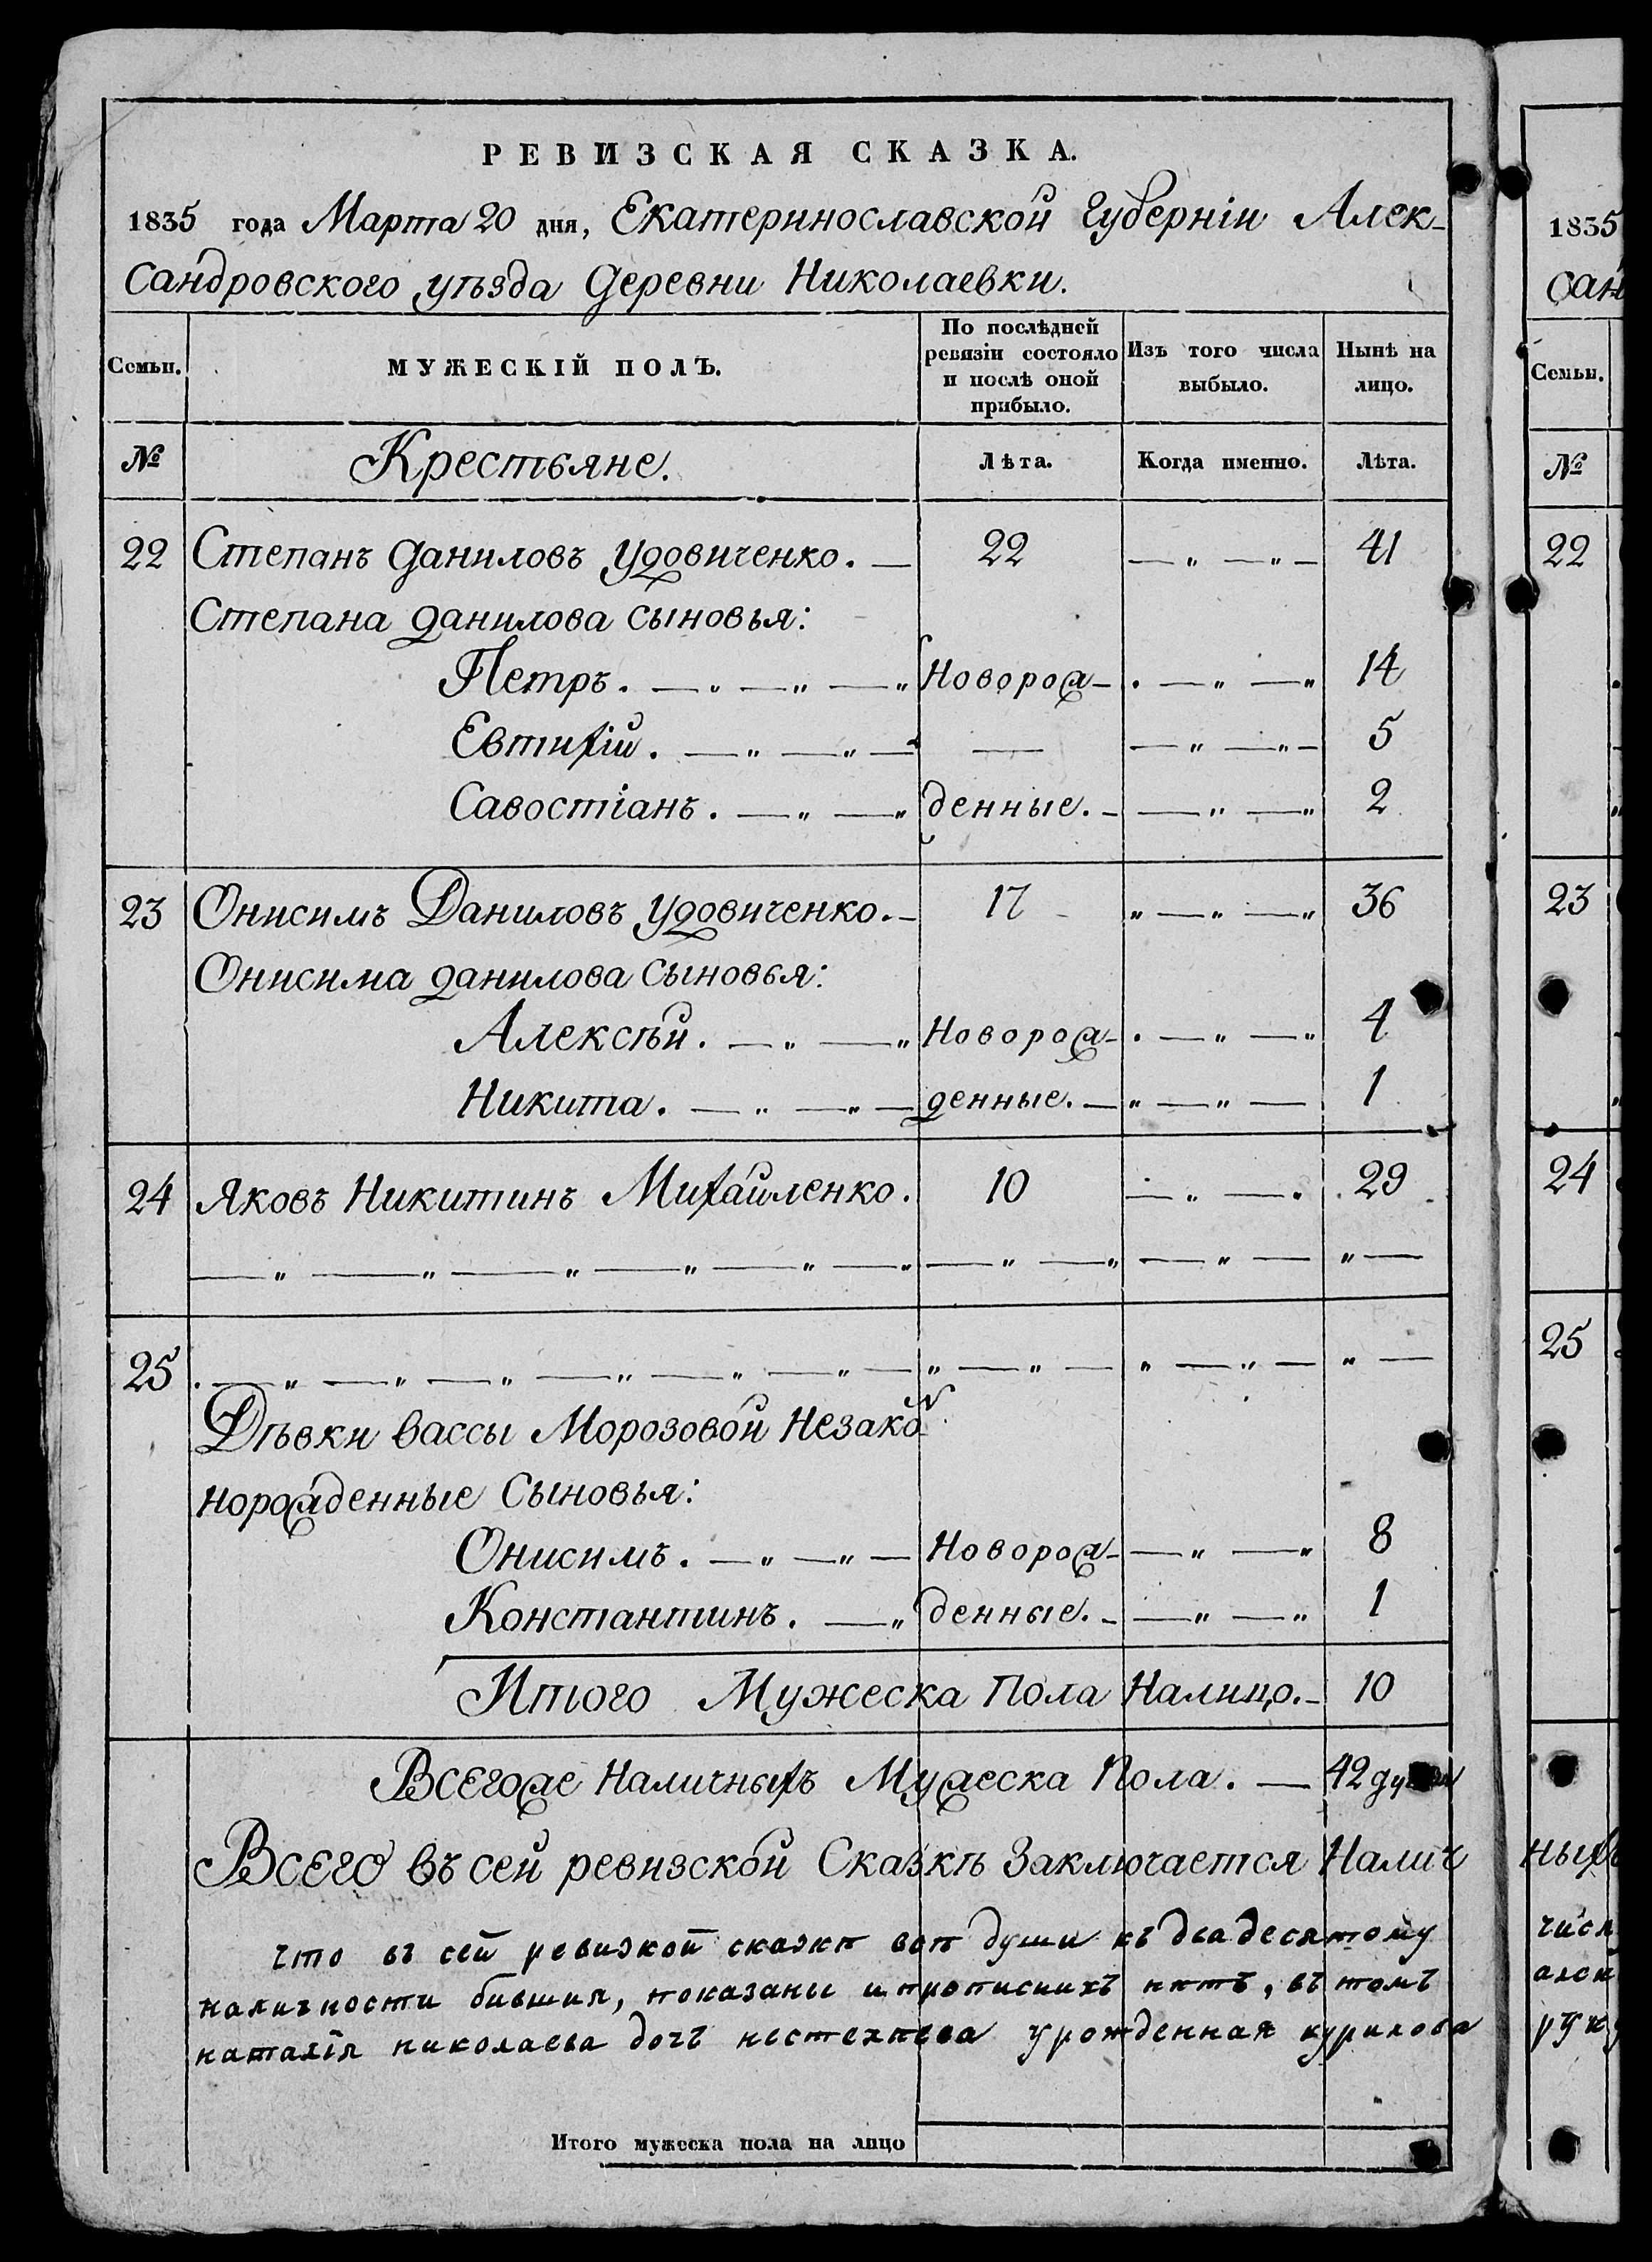 РЕВИЗСКАЯ СКАЗКА.
1835 года Марта 20 дня, Екатеринославской Губерніи Алек-
сандровского уѣзда Деревни Николаевки.
Семьи. МУЖЕСКІЙ ПОЛЪ. По послѣдней ревизіи состояло и послѣ оной прибыло. Изъ того числа выбыло. Нынѣ на лицо.
№ Крестьяне. Лѣта. Когда именно. Лѣта.
22 Степанъ Даниловъ Удовиченко. — 22 — „ — „ — 41
Степана Данилова Сыновья:
Петръ. — „ — „ — „ Новорож- . — „ — „ 14
Евтихій. — „ — „ — — — „ — „ — 5
Савостіанъ. — „ — „ денные. - — „ — „ 2
23 Онисимъ Даниловъ Удовиченко. - 17 - „ — „ — „ 36
Онисима Данилова Сыновья:
Алексѣй. — „ — „ Новорож- . — „ — „ 4
Никита. — „ — „ — денные. — „ — „ — 1
24 Яковъ Никитинъ Михайленко. 10 — „ — „ 29
— „ — „ — „ — „ — „ — „ — „ — „ — „ — „ —
25 . — „ — „ — „ — „ — „ — „ — „ — „ — „ — „ — „ —
Дѣвки Вассы Морозовой Незако-
норожденные Сыновья:
Онисимъ. — „ — „ — Новорож- — „ — „ 8
Константинъ. — „ денные. - — „ — „ 1
Итого Мужеска Пола Налицо. - 10
Всегоже Наличныхъ Мужеска Пола. — 42
Всего въ сей ревизской Сказкѣ Заключается Налич
что въ сей ревизкой сказкѣ всѣ души къ двадесятому
наличности бившия, показаны и прописнихъ нѣтъ, въ томъ
наталія николаева дочъ нестелѣева урожденная курилова
Итого мужеска пола на лицо
1835
сан
Семьи.
№
22
23
24
25
ныхъ
числ
руку